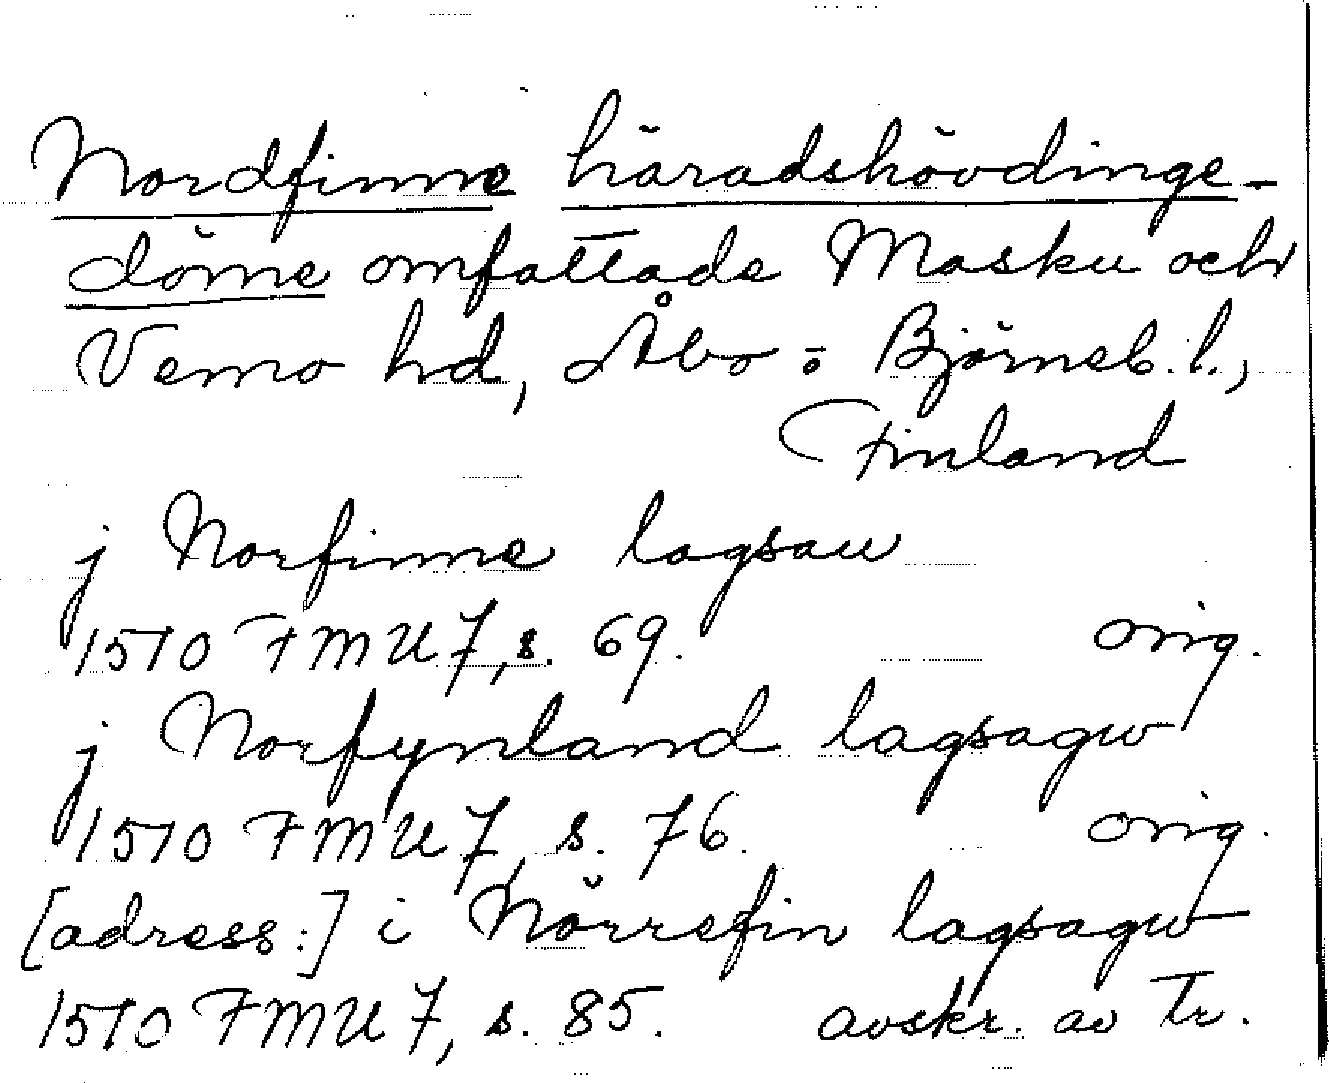 Nordfinne häradshövdinge-
döme omfattade Masku och
Vemo hd, Åbo- o Björneb. l.,
Finland
j Norfinne lagsau
1510 FMU 7, s. 69. orig.
j Norfynland lagsagw
1510 FMU 7, s. 76. orig.
[adress:] i Nörrefin lagsagw
1510 FMU 7, s. 85. avskr. av Tr.